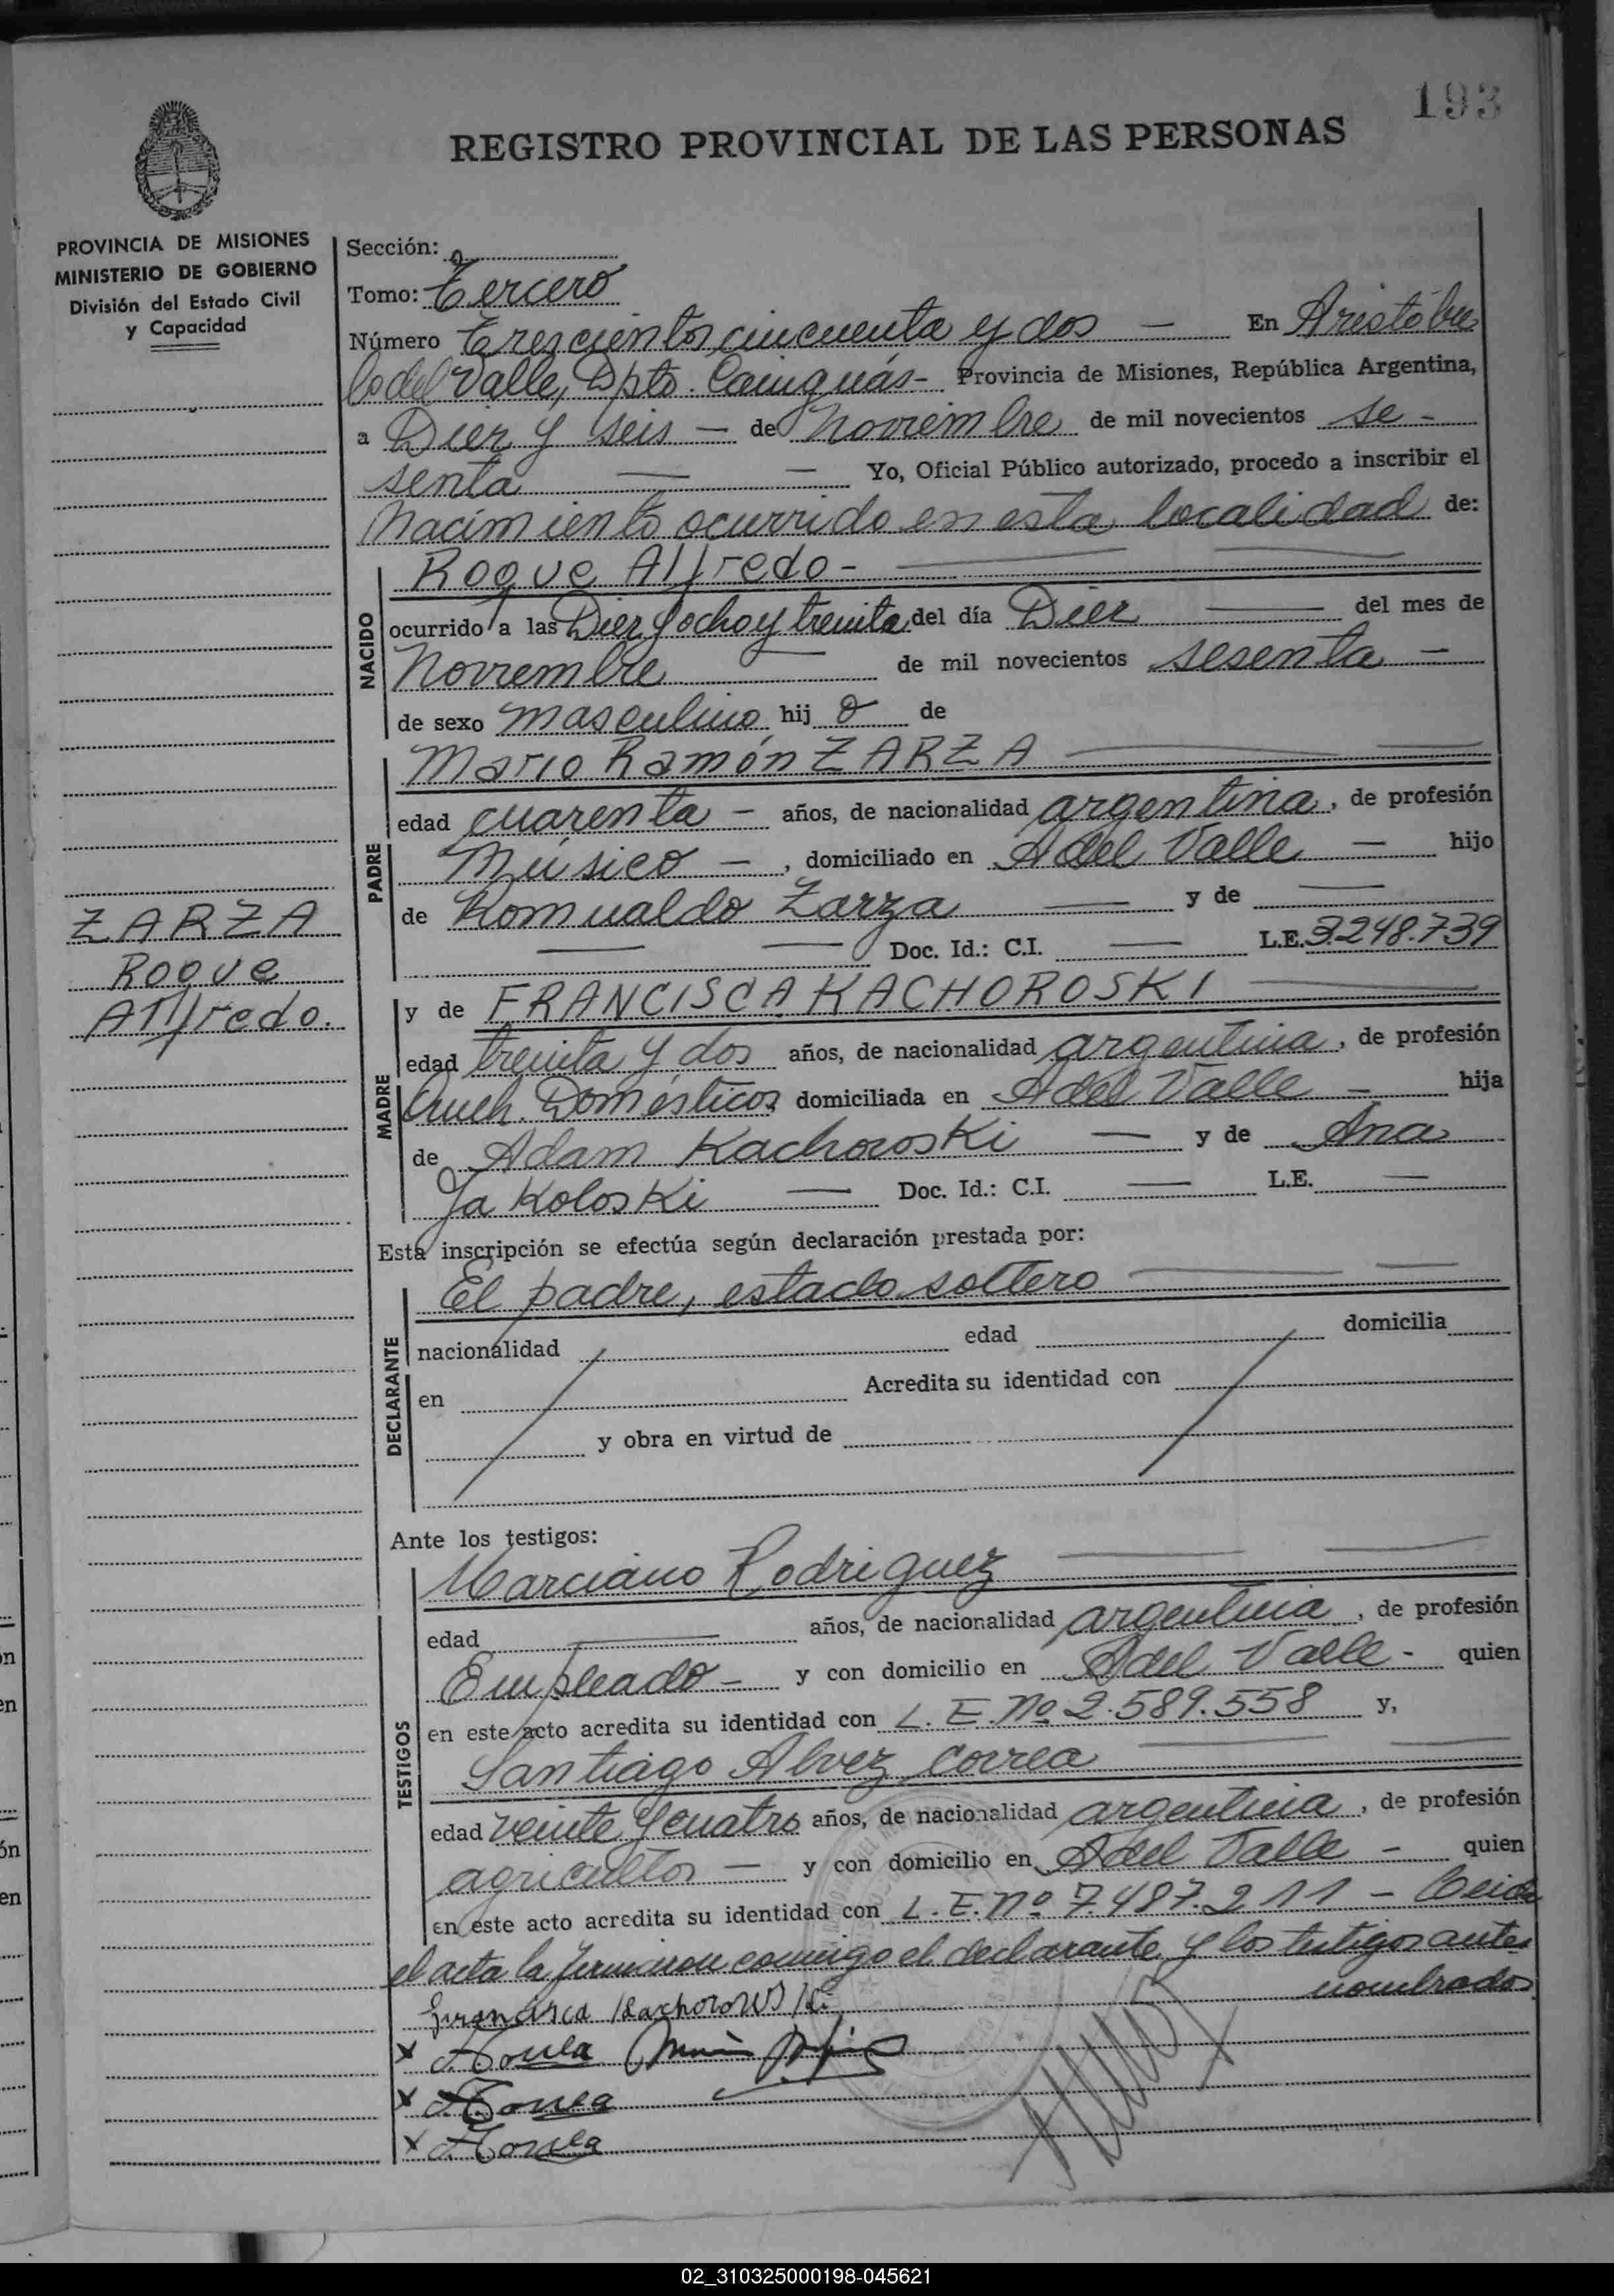 193
REGISTRO PROVINCIAL DE LAS PERSONAS
PROVINCIA DE MISIONES
MINISTERIO DE GOBIERNO
División del Estado Civil
y Capacidad
ZARZA
Roque
Alfredo.
Sección:
Tomo: Tercero
Número Trescientos cincuenta y dos — En Aristóbu
lo del Valle, Dpto. Cainguás - Provincia de Misiones, República Argentina,
a Diez y seis — de Noviembre de mil novecientos se -
senta — — Yo, Oficial Público autorizado, procedo a inscribir el
Nacimiento ocurrido en esta localidad de:
NACIDO
Roque Alfredo -
ocurrido a las Diez y ocho y treinta del día Diez — del mes de
Noviembre — de mil novecientos sesenta —
de sexo masculino hijo de
PADRE
Mario Ramón ZARZA
edad cuarenta - años, de nacionalidad argentina, de profesión
Músico —, domiciliado en A del Valle — hijo
de Romualdo Zarza — y de —
— — Doc. Id.: C.I. — L.E. 3.248.739
MADRE
y de FRANCISCA KACHOROSKI
edad treinta y dos años, de nacionalidad argentina, de profesión
Queh. Domésticos domiciliada en A del Valle — hija
de Adam Kachoroski — y de Ana
Jakoloski — Doc. Id.: C.I. — L.E. —
Esta inscripción se efectúa según declaración prestada por:
DECLARANTE
El padre, estado soltero
nacionalidad edad domicilia
en Acredita su identidad con
y obra en virtud de
Ante los testigos:
TESTIGOS
Marciano Rodriguez
edad — años, de nacionalidad argentina, de profesión
Empleado — y con domicilio en A del Valle - quien
en este acto acredita su identidad con L. E. Nº 2.589.558 y,
Santiago Alvez Correa
edad veinte y cuatro años, de nacionalidad argentina, de profesión
agricultor — y con domicilio en A del Valle - quien
en este acto acredita su identidad con L. E. Nº 7.487.211 - Leida
el acta la firmaron conmigo el declarante y los testigos antes
nombrados
02_310325000198-045621